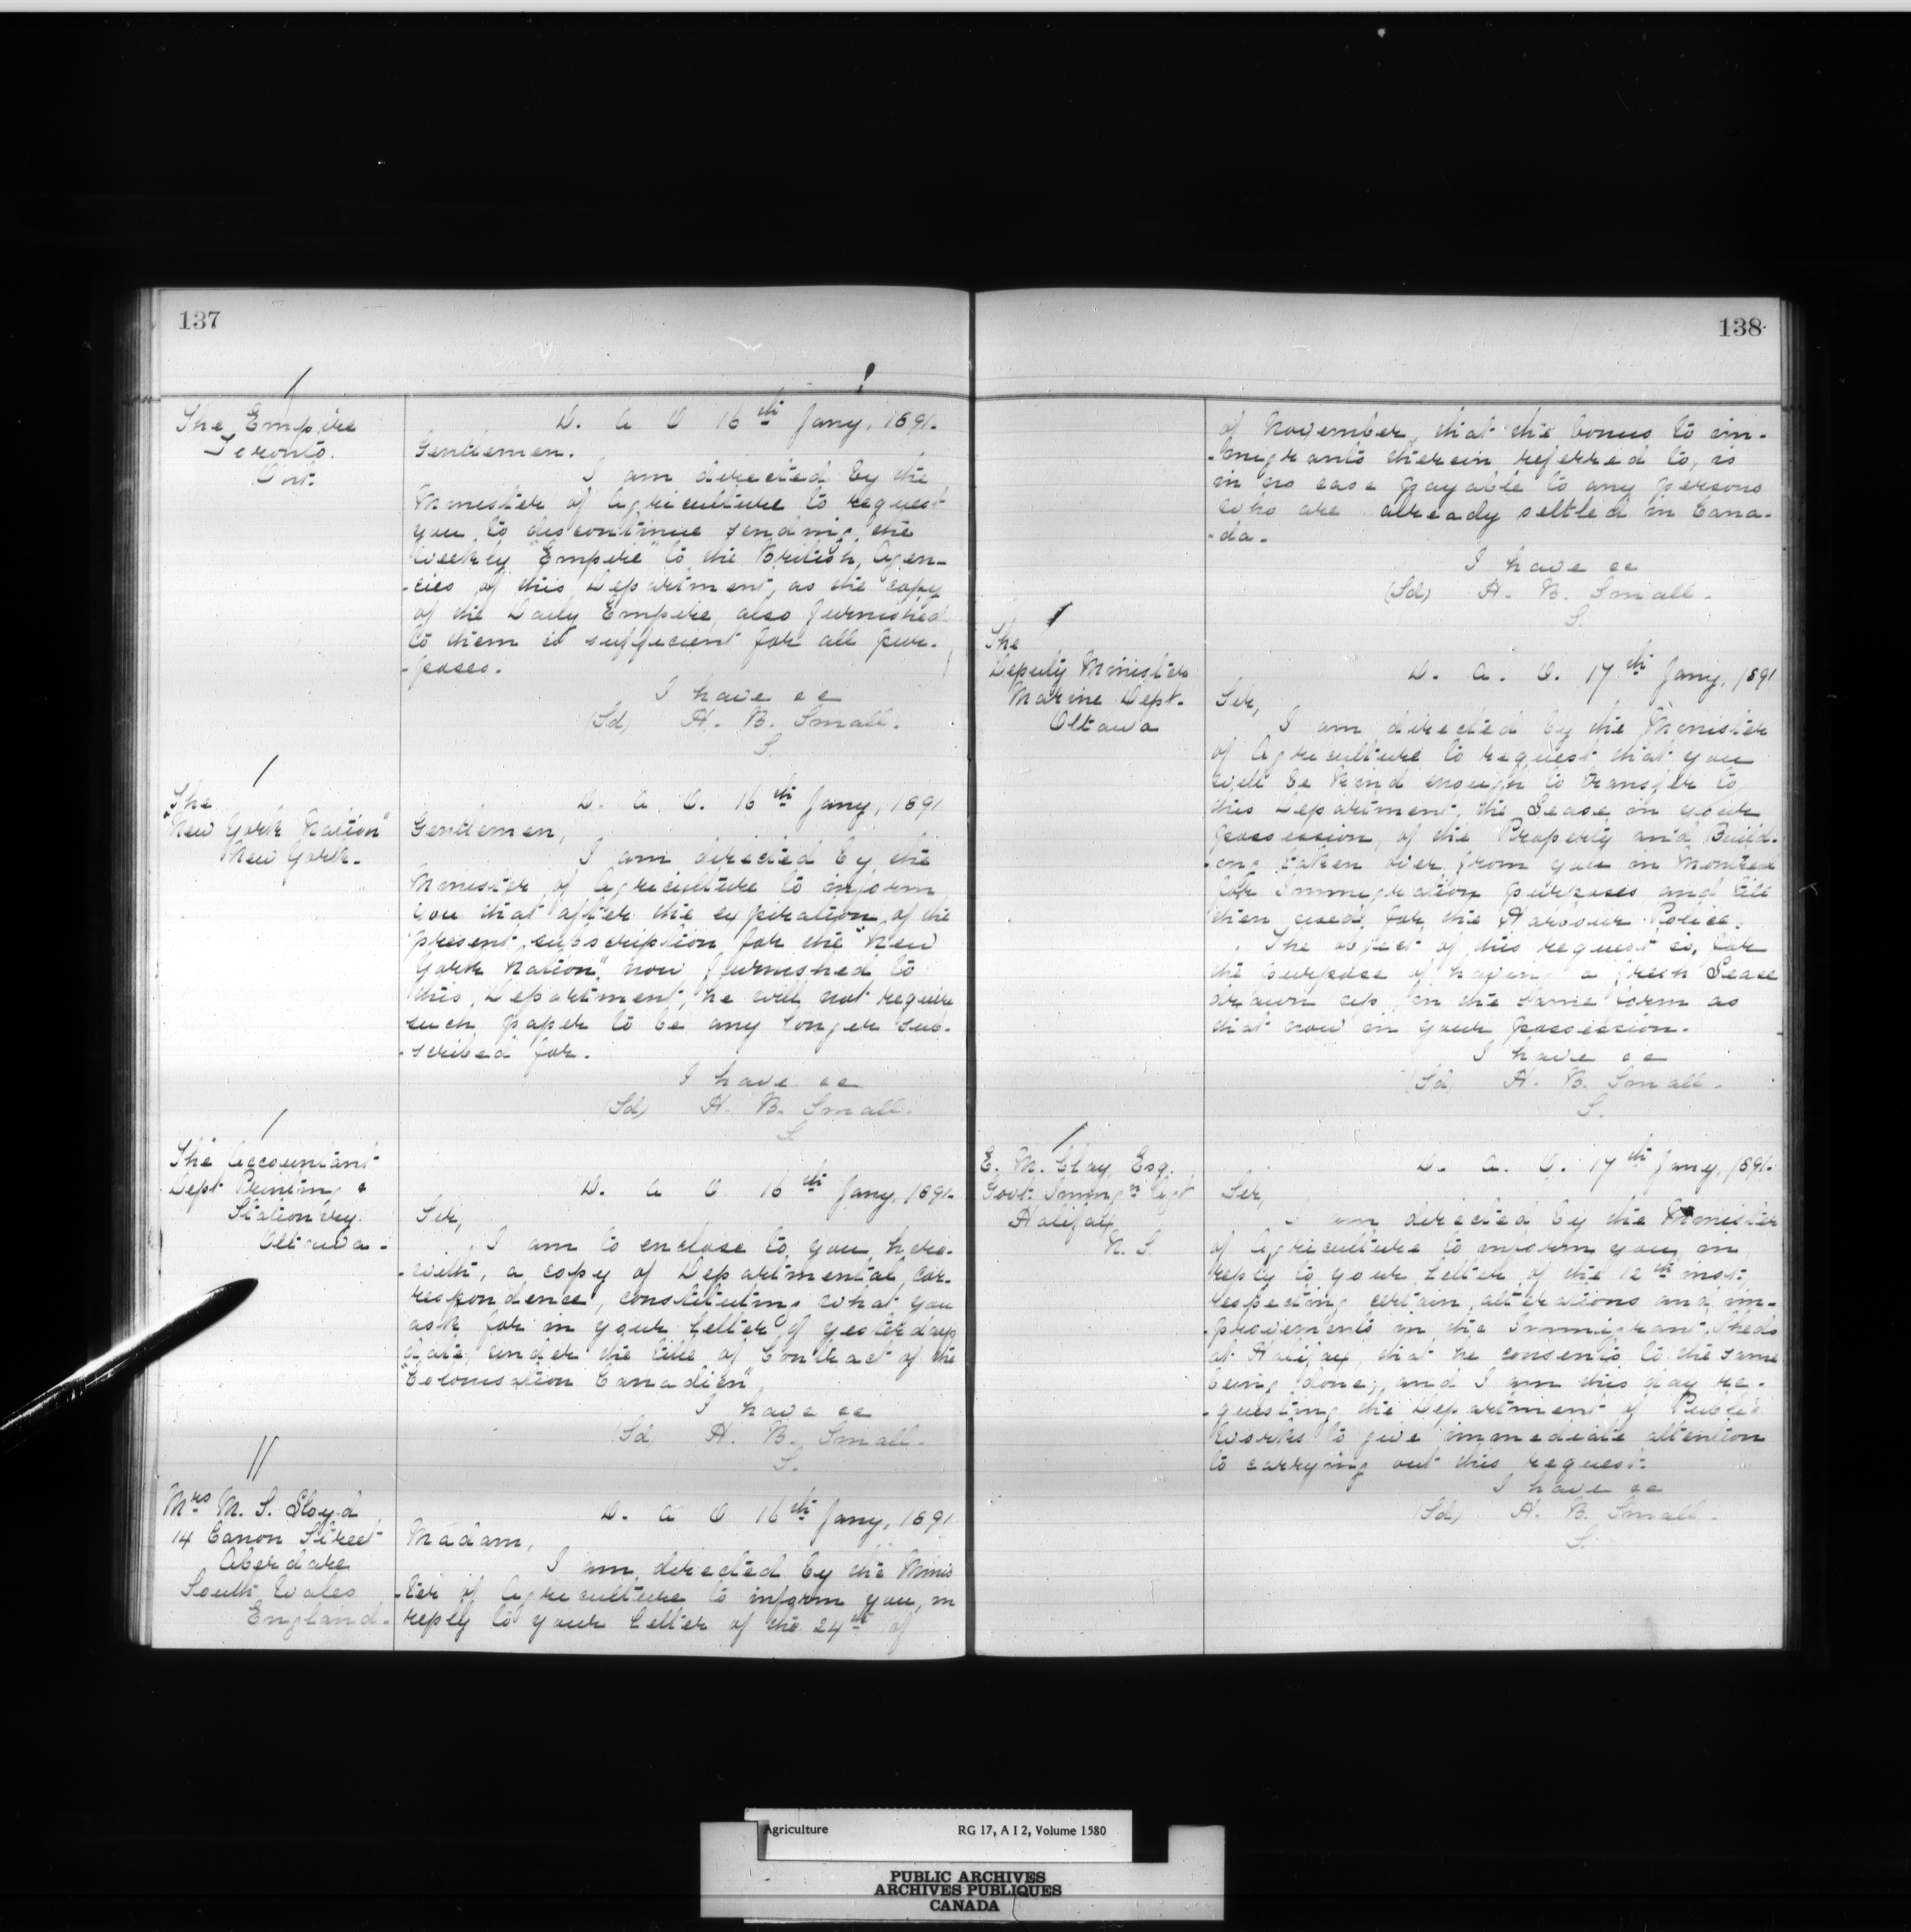 137
The Empire
Toronto.
Ont.
D. A O 16th Jany, 1891.
Gentlemen.
I am directed by the
Minister of Agriculture to request
you to discontinue sending the
Weekly "Empire" to the British Agen-
-cies of this Department, as the copy
of the Daily Empire, also furnished
to them is sufficient for all pur-
-poses.
I have &c
(Sd) H. B. Small.
S.
The
"New York Nation"
New York.
D. A O. 16th Jany, 1891
Gentlemen,
I am directed by the
Minister of Agriculture to inform
you that after the expiration of the
present subscription for the "New
York Nation," now furnished to
this Department, he will not require
such paper to be any longer sub-
-scribed for.
I have &c
(Sd) H. B. Small.
S.
The Accountant
Dept Printing &
Stationery.
Ottawa.
D. A O 16th Jany, 1891.
Sir,
I am to enclose to you, here-
-with, a copy of Departmental Cor-
respondence, constituting what you
ask for in your letter of yesterdays
date, under the title of Contract of the
"Colonisation Canadien"
I have &c
(Sd) H. B. Small.
S.
Mrs M. S. Lloyd
14 Canon Street
Aberdare
South Wales
England.
D. A O 16th Jany, 1891
Madam,
I am directed by the Minis
-ter of Agriculture to inform you, in
reply to your letter of the 24th of
138
of November, that the bonus to im-
-migrants therein referred to, is
in no case payable to any persons
who are already settled in Cana-
-da.
I have &c
(Sd) H. B. Small.
S.
The
Deputy Minister
Marine Dept.
Ottawa
D. A. O. 17th Jany, 1891
Sir,
I am directed by the Minister
of Agriculture to request that you
will be kind enough to transfer to
this Department, the Lease in your
possession, of the Property and Build-
-ing taken over from you in Montreal
for Immigration purposes and till
then used for the Harbour Police.
The object of this request is, for
the purpose of having a fresh Lease
drawn up in the same form as
that now in your possession.
I have &c
(Sd) H. B. Small.
S.
E. M. Clay, Esq.
Govt. Immign Agt
Halifax
N. S.
D. A. O. 17th Jany, 1891.
Sir,
I am directed by the Minister
of Agriculture to inform you, in
reply to your letter of the 12th inst:
respecting certain alterations and im-
-provements in the Immigrant Sheds
at Halifax, that he consents to the same
being done; and I am this day re-
-questing the Department of Public
Works to give immediate attention
to carrying out this request.
I have &c
(Sd) H. B. Small.
S.
Agriculture RG 17, A I 2, Volume 1580
PUBLIC ARCHIVES
ARCHIVES PUBLIQUES
CANADA